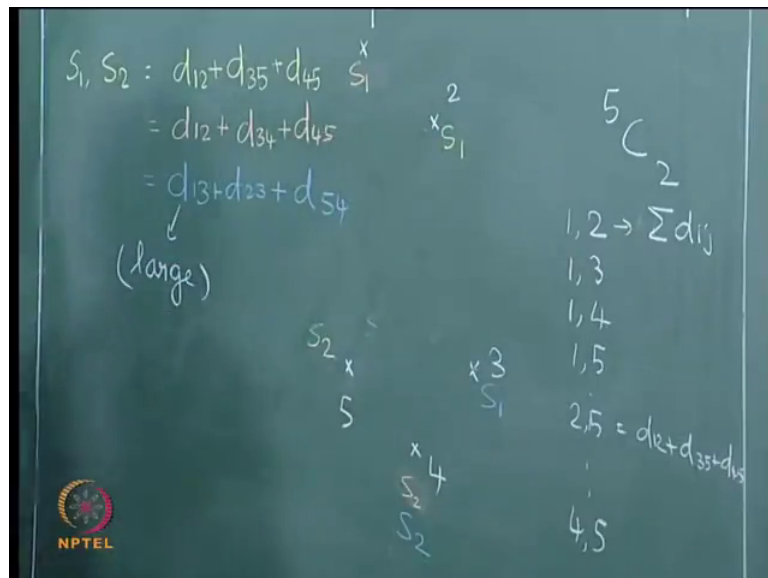 S₁, S₂ : d₁₂+d₃₅+d₄₅
= d₁₂+d₃₄+d₄₅
= d₁₃+d₂₃+d₅₄
(large)
x
S₁
2
x S₁
S₂
x
5
x 3
S₁
x 4
S₂
S₂
⁵C₂
1,2 → Σdij
1,3
1,4
1,5
.
2,5 = d₁₂+d₃₅+d₄₅
:
4,5
NPTEL